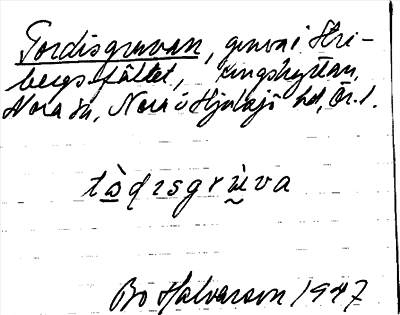 Tordisgruvan, gruva i Stri-
bergsfältet, Kungshyttan,
Nora sn, Nora o Hjulsjö hd, Ör. l.
tɷ̀ḍısgrù̬va
Bo Halvarson 1947